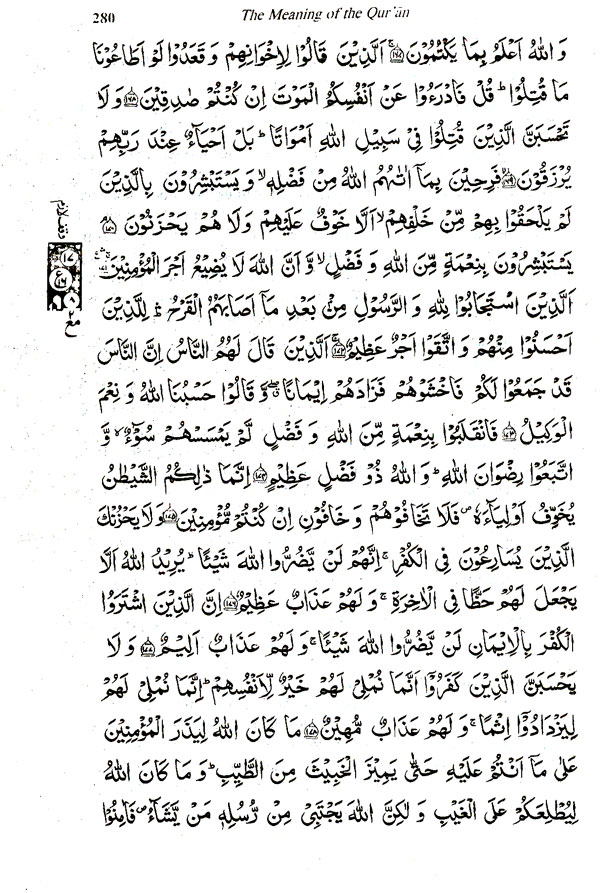 280
The Meaning of the Qur'ān
وَ اللّٰهُ اَعْلَمُ بِمَا يَكْتُمُوْنَ ۚ﴿۱۶۷﴾ اَلَّذِيْنَ قَالُوْا لِاِخْوَانِهِمْ وَ قَعَدُوْا لَوْ اَطَاعُوْنَا
مَا قُتِلُوْا ؕ قُلْ فَادْرَءُوْا عَنْ اَنْفُسِكُمُ الْمَوْتَ اِنْ كُنْتُمْ صٰدِقِيْنَ ﴿۱۶۸﴾ وَ لَا
تَحْسَبَنَّ الَّذِيْنَ قُتِلُوْا فِيْ سَبِيْلِ اللّٰهِ اَمْوَاتًا ؕ بَلْ اَحْيَآءٌ عِنْدَ رَبِّهِمْ
يُرْزَقُوْنَ ﴿۱۶۹﴾ فَرِحِيْنَ بِمَآ اٰتٰىهُمُ اللّٰهُ مِنْ فَضْلِهٖ ۙ وَ يَسْتَبْشِرُوْنَ بِالَّذِيْنَ
لَمْ يَلْحَقُوْا بِهِمْ مِّنْ خَلْفِهِمْ ۙ اَلَّا خَوْفٌ عَلَيْهِمْ وَ لَا هُمْ يَحْزَنُوْنَ ﴿۱۷۰﴾
يَسْتَبْشِرُوْنَ بِنِعْمَةٍ مِّنَ اللّٰهِ وَ فَضْلٍ ۙ وَّ اَنَّ اللّٰهَ لَا يُضِيْعُ اَجْرَ الْمُؤْمِنِيْنَ ﴿۱۷۱﴾
اَلَّذِيْنَ اسْتَجَابُوْا لِلّٰهِ وَ الرَّسُوْلِ مِنْۢ بَعْدِ مَآ اَصَابَهُمُ الْقَرْحُ ؕۛ لِلَّذِيْنَ
اَحْسَنُوْا مِنْهُمْ وَ اتَّقَوْا اَجْرٌ عَظِيْمٌ ۚ﴿۱۷۲﴾ اَلَّذِيْنَ قَالَ لَهُمُ النَّاسُ اِنَّ النَّاسَ
قَدْ جَمَعُوْا لَكُمْ فَاخْشَوْهُمْ فَزَادَهُمْ اِيْمَانًا ۖۗ وَّ قَالُوْا حَسْبُنَا اللّٰهُ وَ نِعْمَ
الْوَكِيْلُ ﴿۱۷۳﴾ فَانْقَلَبُوْا بِنِعْمَةٍ مِّنَ اللّٰهِ وَ فَضْلٍ لَّمْ يَمْسَسْهُمْ سُوْٓءٌ ۙ وَّ
اتَّبَعُوْا رِضْوَانَ اللّٰهِ ؕ وَ اللّٰهُ ذُوْ فَضْلٍ عَظِيْمٍ ﴿۱۷۴﴾ اِنَّمَا ذٰلِكُمُ الشَّيْطٰنُ
يُخَوِّفُ اَوْلِيَآءَهٗ ۪ فَلَا تَخَافُوْهُمْ وَ خَافُوْنِ اِنْ كُنْتُمْ مُّؤْمِنِيْنَ ﴿۱۷۵﴾ وَ لَا يَحْزُنْكَ
الَّذِيْنَ يُسَارِعُوْنَ فِي الْكُفْرِ ۚ اِنَّهُمْ لَنْ يَّضُرُّوا اللّٰهَ شَيْئًا ؕ يُرِيْدُ اللّٰهُ اَلَّا
يَجْعَلَ لَهُمْ حَظًّا فِي الْاٰخِرَةِ ۚ وَ لَهُمْ عَذَابٌ عَظِيْمٌ ﴿۱۷۶﴾ اِنَّ الَّذِيْنَ اشْتَرَوُا
الْكُفْرَ بِالْاِيْمَانِ لَنْ يَّضُرُّوا اللّٰهَ شَيْئًا ۚ وَ لَهُمْ عَذَابٌ اَلِيْمٌ ﴿۱۷۷﴾ وَ لَا
يَحْسَبَنَّ الَّذِيْنَ كَفَرُوْٓا اَنَّمَا نُمْلِيْ لَهُمْ خَيْرٌ لِّاَنْفُسِهِمْ ؕ اِنَّمَا نُمْلِيْ لَهُمْ
لِيَزْدَادُوْٓا اِثْمًا ۚ وَ لَهُمْ عَذَابٌ مُّهِيْنٌ ﴿۱۷۸﴾ مَا كَانَ اللّٰهُ لِيَذَرَ الْمُؤْمِنِيْنَ
عَلٰى مَآ اَنْتُمْ عَلَيْهِ حَتّٰى يَمِيْزَ الْخَبِيْثَ مِنَ الطَّيِّبِ ؕ وَ مَا كَانَ اللّٰهُ
لِيُطْلِعَكُمْ عَلَى الْغَيْبِ وَ لٰكِنَّ اللّٰهَ يَجْتَبِيْ مِنْ رُّسُلِهٖ مَنْ يَّشَآءُ ۪ فَاٰمِنُوْا